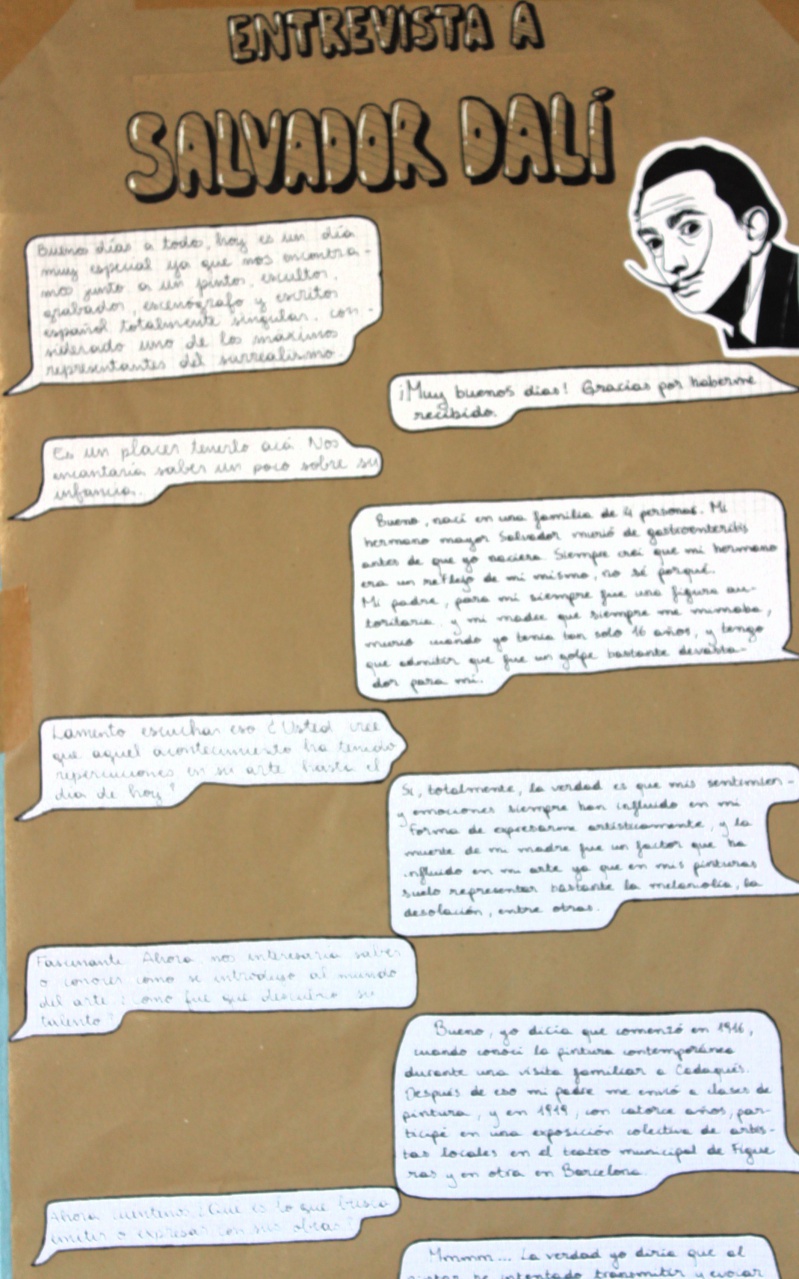 ENTREVISTA A
SALVADOR DALÍ
Buenos días a todos, hoy es un día
muy especial ya que nos encontra-
mos junto a un pintor, escultor,
grabador, escenógrafo y escritor
español totalmente singular, con-
siderado uno de los máximos
representantes del surrealismo.
¡Muy buenos dias! Gracias por haberme
recibido.
Es un placer tenerlo acá Nos
encantaria saber un poco sobre su
infancia.
Bueno, nací en una familia de 4 personas. Mi
hermano mayor Salvador murió de gastroenteritis
antes de que yo naciera. Siempre creí que mi hermano
era un reflejo de mi mismo, no sé porqué.
Mi padre, para mi siempre fue una figura au-
toritaria. y mi madre que siempre me mimaba,
murio cuando yo tenía tan solo 16 años, y tengo
que admitir que fue un golpe bastante devasta-
dor para mí.
Lamento escuchar eso ¿Usted cree
que aquel acontecimiento ha tenido
repercuciones en su arte hasta el
dia de hoy?
Si, totalmente, la verdad es que mis sentimien-
y emociones siempre han influido en mi
forma de expresarme artísticamente, y la
muerte de mi madre fue un factor que ha
influido en mi arte ya que en mis pinturas
suelo representar bastante la melancolía, la
desolación, entre otras.
Fascinante. Ahora nos interesaria saber
o conocer como se introdujo al mundo
del arte. ¿Como fue que descubrio su
talento?
Bueno, yo diria que comenzó en 1916,
cuando conocí la pintura contemporánea
durante una visita familiar a Cadaqués.
Después de eso mi padre me envió a clases de
pintura, y en 1919, con catorce años, par-
ticipé en una exposición colectiva de artis-
tas locales en el teatro municipal de Figue
ras y en otra en Barcelona.
Ahora cuentenos ¿Qué es lo que busca
emitir o expresar con sus obras?
Mmmm... La verdad yo diria que al
pintar he intentado transmitir y evocar